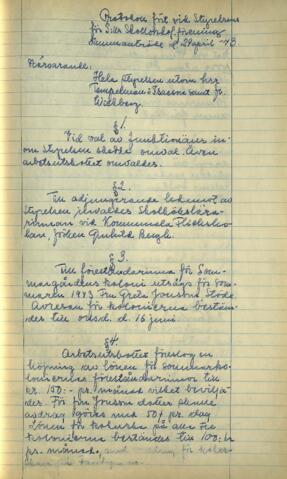 Protokoll fört vid Styrelsens
för S:ters Skollovskol. förenings
sammanträde d. 29 april -43.
Närvarande:
Hela styrelsen utom hrr
Tempelman, Isacson samt fr.
Widberg.
§ 1.
Vid val av funktionärer in-
om styrelsen skedde omval. Även
arbetsutskottet omvaldes.
§ 2.
Till adjungerande ledamot av
styrelsen invaldes Skolköksära-
rinnan vid Kommunala Flicksko-
lan, fröken Gunhild Bergh.
§ 3.
Till föreståndarinna för Som-
margårdens koloni utsågs för som-
maren 1943 Fru Greta Jonsson, Stöde.
Avresan för kolonierna bestäm-
des till onsd. d. 16 juni.
§ 4.
Arbetsutskottet föreslog en
höjning av lönen för sommarko-
loniernas föreståndarinnor till
kr. 150:- pr. månad vilket bevilja-
des. För fru Jonsson dotter skulle
avdrag göras med 50 öre pr. dag
Lönen för kokerska på alla tre
kolonierna bestämdes till 100:- kr
pr. månad,